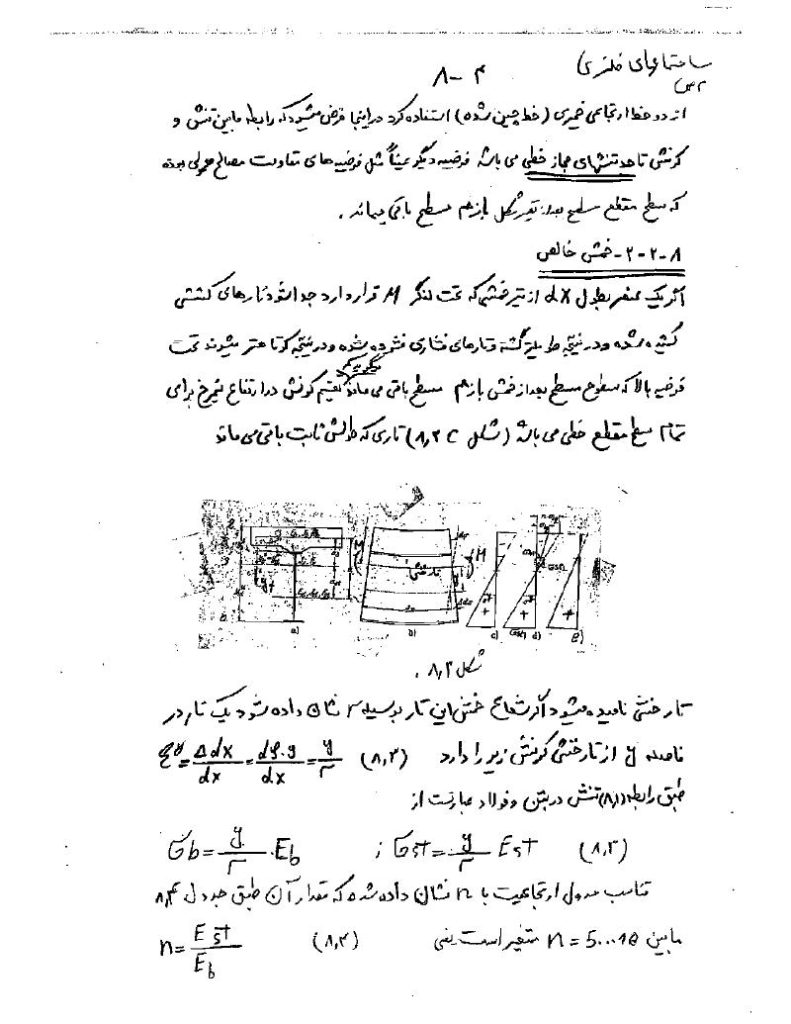 ساختمانهای فلزی
۸-۴
از دو خط ارتجاعی خمیری (خط چین شده) استفاده کرد در اینجا فرض میشود که رابطه مابین تنش و
کرنش تا حد تنشهای مجاز خطی می باشد فرضیه دیگر عیناً مثل فرضیه های مقاومت مصالح معمولی بوده
که سطح مقطع مسطح بعد از تغییر شکل بازهم مسطح باقی میماند .
۸-۲-۲- خمش خالص
اگر یک عنصر بطول dx از تیر خمشی که تحت لنگر M قرار دارد جدا شود تارهای کششی
کشیده شده و در نتیجه طویلتر گشته و تارهای فشاری فشرده شده و در نتیجه کوتاهتر میشوند تحت
فرضیه بالا که سطوح مسطح بعد از خمش بازهم مسطح باقی می ماند میگوییم که تقسیم کرنش در ارتفاع نیمرخ برای
تمام سطح مقطع خطی می باشد (شکل ۸,۲ c) تاری که طولش ثابت باقی می ماند
M
تار خنثی
M
a) b) c) d) e)
شکل ۸,۲ .
تار خنثی نامیده میشود اگر شعاع خمش این تار بوسیله r نشان داده شود یک تار در
فاصله y از تار خنثی کرنش زیر را دارد (۸,۲) εy = Δdx/dx = dφ.y/dx = y/r
طبق رابطه (۸,۱) تنش در بتن و فولاد عبارتست از
σb = y/r . Eb ; σst = y/r Est (۸,۳)
تناسب مدول ارتجاعیت با n نشان داده شده که مقدار آن طبق جدول ۸,۴
مابین n = 5...18 متغیر است یعنی (۸,۴) n = Est/Eb